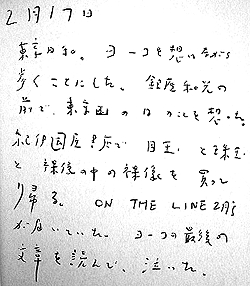 2月17日
東京日和。ヨーコを想いながら
歩くことにした。銀座和光の
前で、東京画の日のことを想った。
紀伊国屋書店で
と 裸後の中の裸像を 買って
帰る。 ON THE LINE 2月号
が届いていた。ヨーコの最後の
文章を読んで、泣いた。